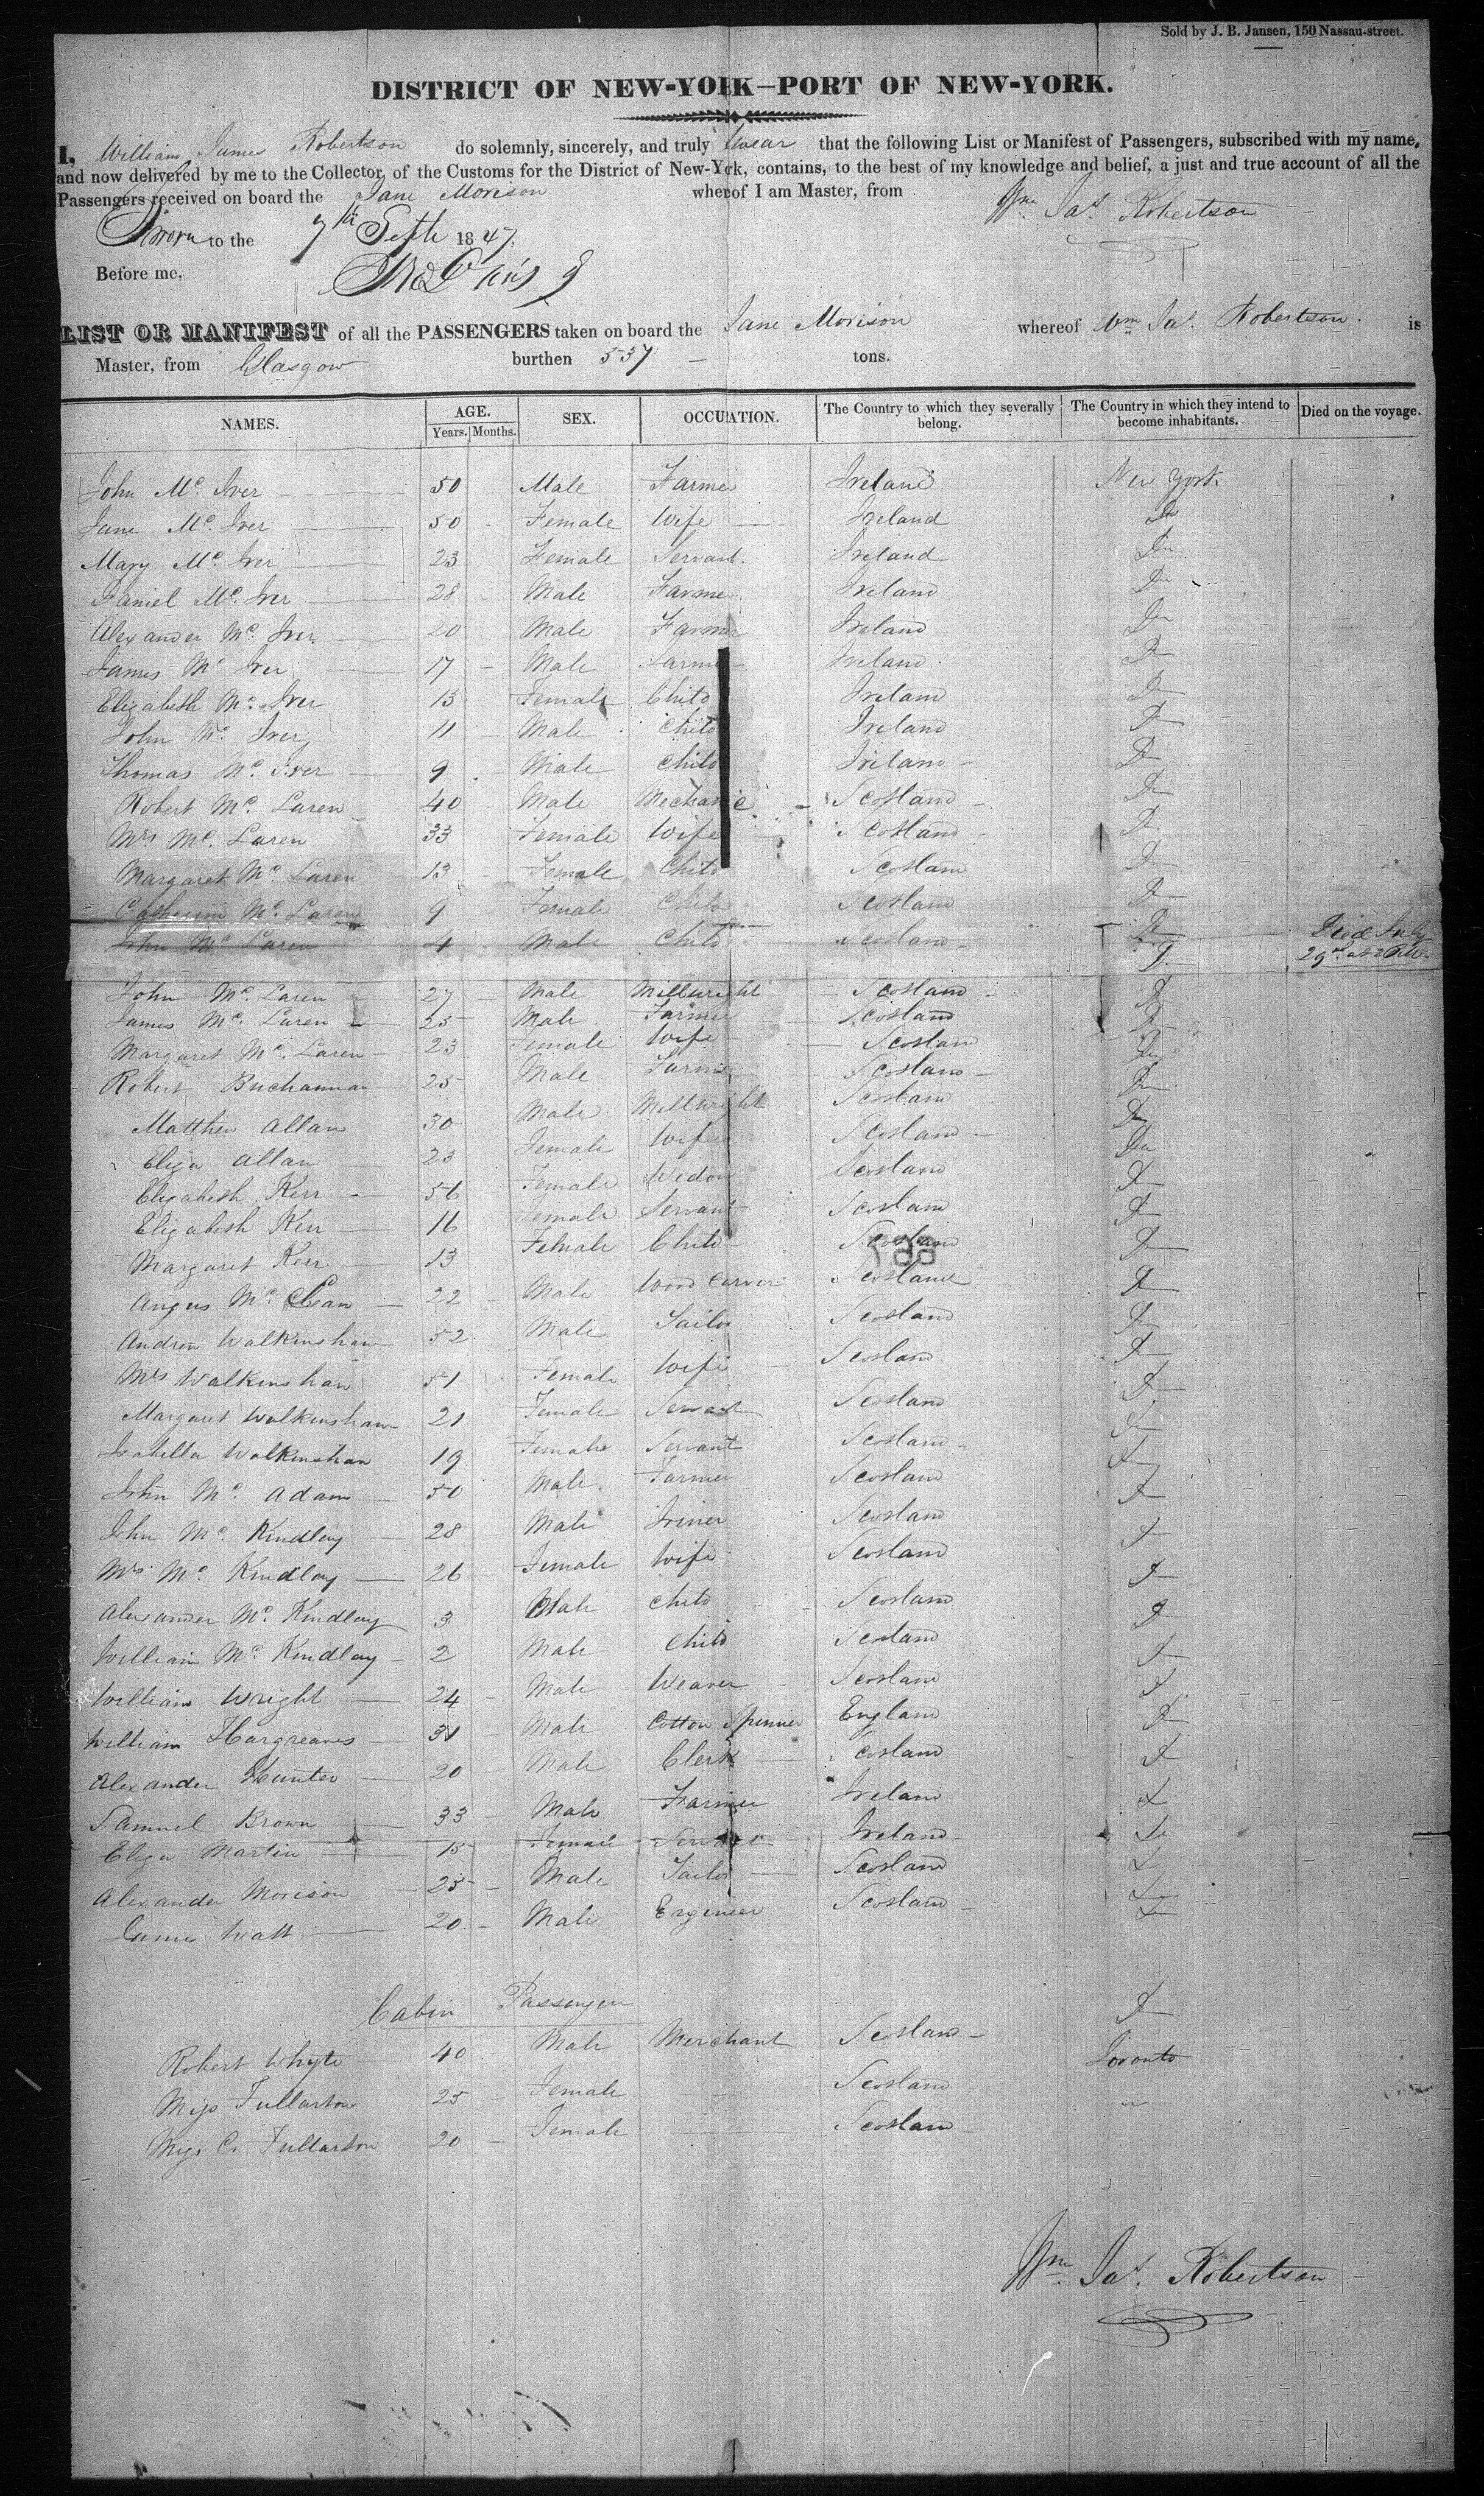 Sold by J. B. Jansen, 150 Nassau-street.
DISTRICT OF NEW-YORK—PORT OF NEW-YORK.
I, William James Robertson do solemnly, sincerely, and truly swear that the following List or Manifest of Passengers, subscribed with my name,
and now delivered by me to the Collector, of the Customs for the District of New-York, contains, to the best of my knowledge and belief, a just and true account of all the
Passengers received on board the Jane Morison wherof I am Master, from
Wm Jas. Robertson
Sworn to the 7th Septr 1847.
Before me,
LIST OR MANIFEST of all the PASSENGERS taken on board the Jane Morison whereof Wm Jas. Robertson. is
Master, from Glasgow burthen 537 tons.
NAMES. AGE. Years. Months. SEX. OCCUPATION. The Country to which they severally belong. The Country in which they intend to become inhabitants. Died on the voyage.
John Mc. Iver 50 Male Farmer Ireland New York
Jane Mc. Iver 50 Female Wife Ireland Do
Mary Mc. Iver 23 Female Servant. Ireland Do
Daniel Mc. Iver 28 Male Farmer Ireland Do
Alexander Mc. Iver 20 Male Farmer Ireland Do
James Mc Iver 17 Male Farmer Ireland Do
Elizabeth Mc. Iver 13 Female Child Ireland Do
John Mc. Iver 11 Male Child Ireland Do
Thomas Mc. Iver 9 Male Child Ireland Do
Robert Mc. Laren 40 Male Mechanic Scotland Do
Mrs Mc. Laren 33 Female Wife Scotland Do
Margaret Mc. Laren 13 Female Child Scotland Do
Catherine Mc. Laren 9 Female Child Scotland Do
John Mc Laren 4 Male Child Scotland Do Died July 29th at 2 P.M.
John Mc. Laren 27 Male Millwright Scotland Do
James Mc. Laren 25 Male Farmer Scotland Do
Margaret Mc. Laren 23 Female Wife Scotland Do
Robert Buchannan 25 Male Farmer Scotland Do
Matthew Allan 30 Male Millwright Scotland Do
Eliza Allan 23 Female Wife Scotland Do
Elizabeth Kerr 56 Female Widow Scotland Do
Elizabeth Kerr 16 Female Servant Scotland Do
Margaret Kerr 13 Female Child Scotland Do
Angus Mc. Clean 22 Male Wood Carver Scotland Do
Andrew Walkinshaw 52 Male Tailor Scotland Do
Mrs Walkinshaw 51 Female Wife Scotland Do
Margaret Walkinshaw 21 Female Servant Scotland Do
Isabella Walkinshaw 19 Female Servant Scotland Do
John Mc. Adam 50 Male Farmer Scotland Do
John Mc. Kindlay 28 Male Joiner Scotland Do
Mrs Mc. Kindlay 26 Female Wife Scotland Do
Alexander Mc. Kindlay 3 Male Child Scotland Do
William Mc. Kindlay 2 Male Child Scotland Do
William Wright 24 Male Weaver Scotland Do
William Hargreaves 31 Male Cotton Spinner England Do
Alexander Hunter 20 Male Clerk Scotland Do
Samuel Brown 33 Male Farmer Ireland Do
Eliza Martin 15 Female Servant Ireland Do
Alexander Morison 25 Male Tailor Scotland Do
James Watt 20 Male Engineer Scotland Do
Cabin Passengers
Robert Whyte 40 Male Merchant Scotland Do
Miss Fullarton 25 Female Scotland Toronto
Miss C. Fullarton 20 Female Scotland "
Wm. Jas. Robertson